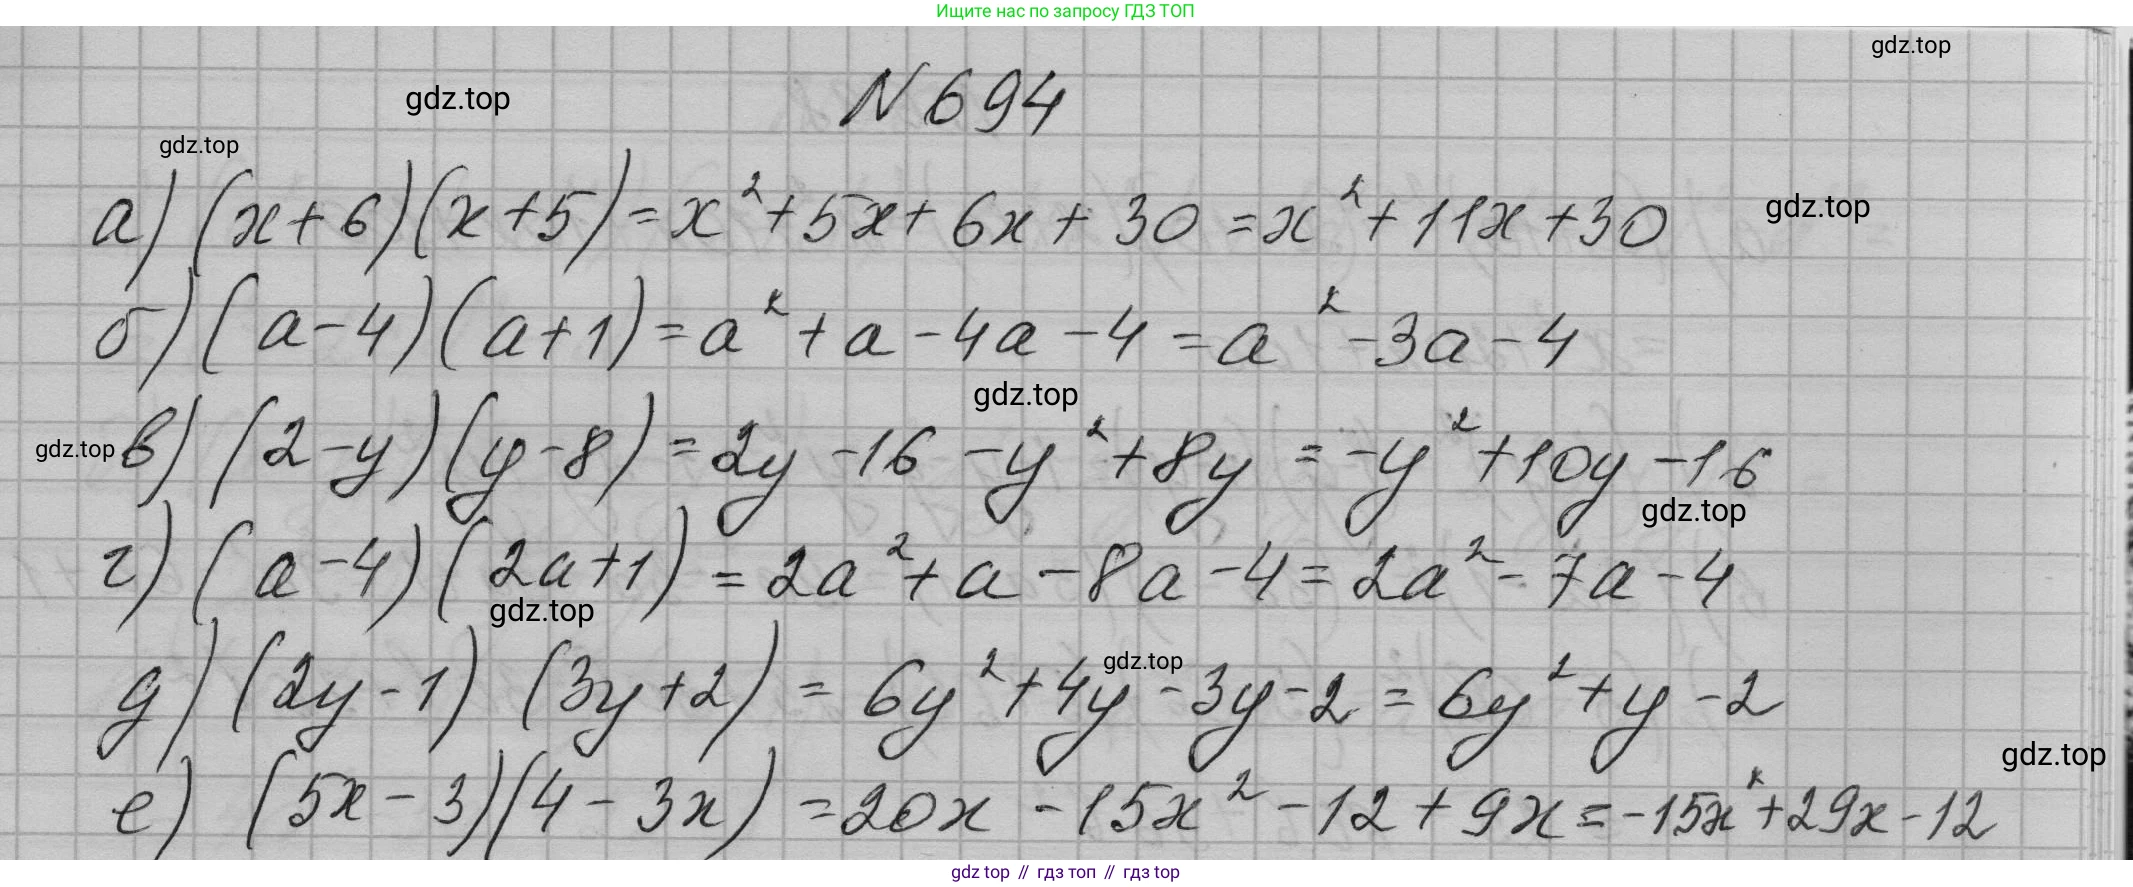 Ищите нас по запросу ГДЗ ТОП
gdz.top
gdz.top
№694
gdz.top
а) (x+6)(x+5)=x²+5x+6x+30=x²+11x+30
gdz.top
б) (a-4)(a+1)=a²+a-4a-4=a²-3a-4
gdz.top
gdz.top
в) (2-y)(y-8)=2y-16-y²+8y=-y²+10y-16
gdz.top
г) (a-4)(2a+1)=2a²+a-8a-4=2a²-7a-4
gdz.top
gdz.top
д) (2y-1)(3y+2)=6y²+4y-3y-2=6y²+y-2
gdz.top
е) (5x-3)(4-3x)=20x-15x²-12+9x=-15x²+29x-12
gdz top // гдз топ // гдз top